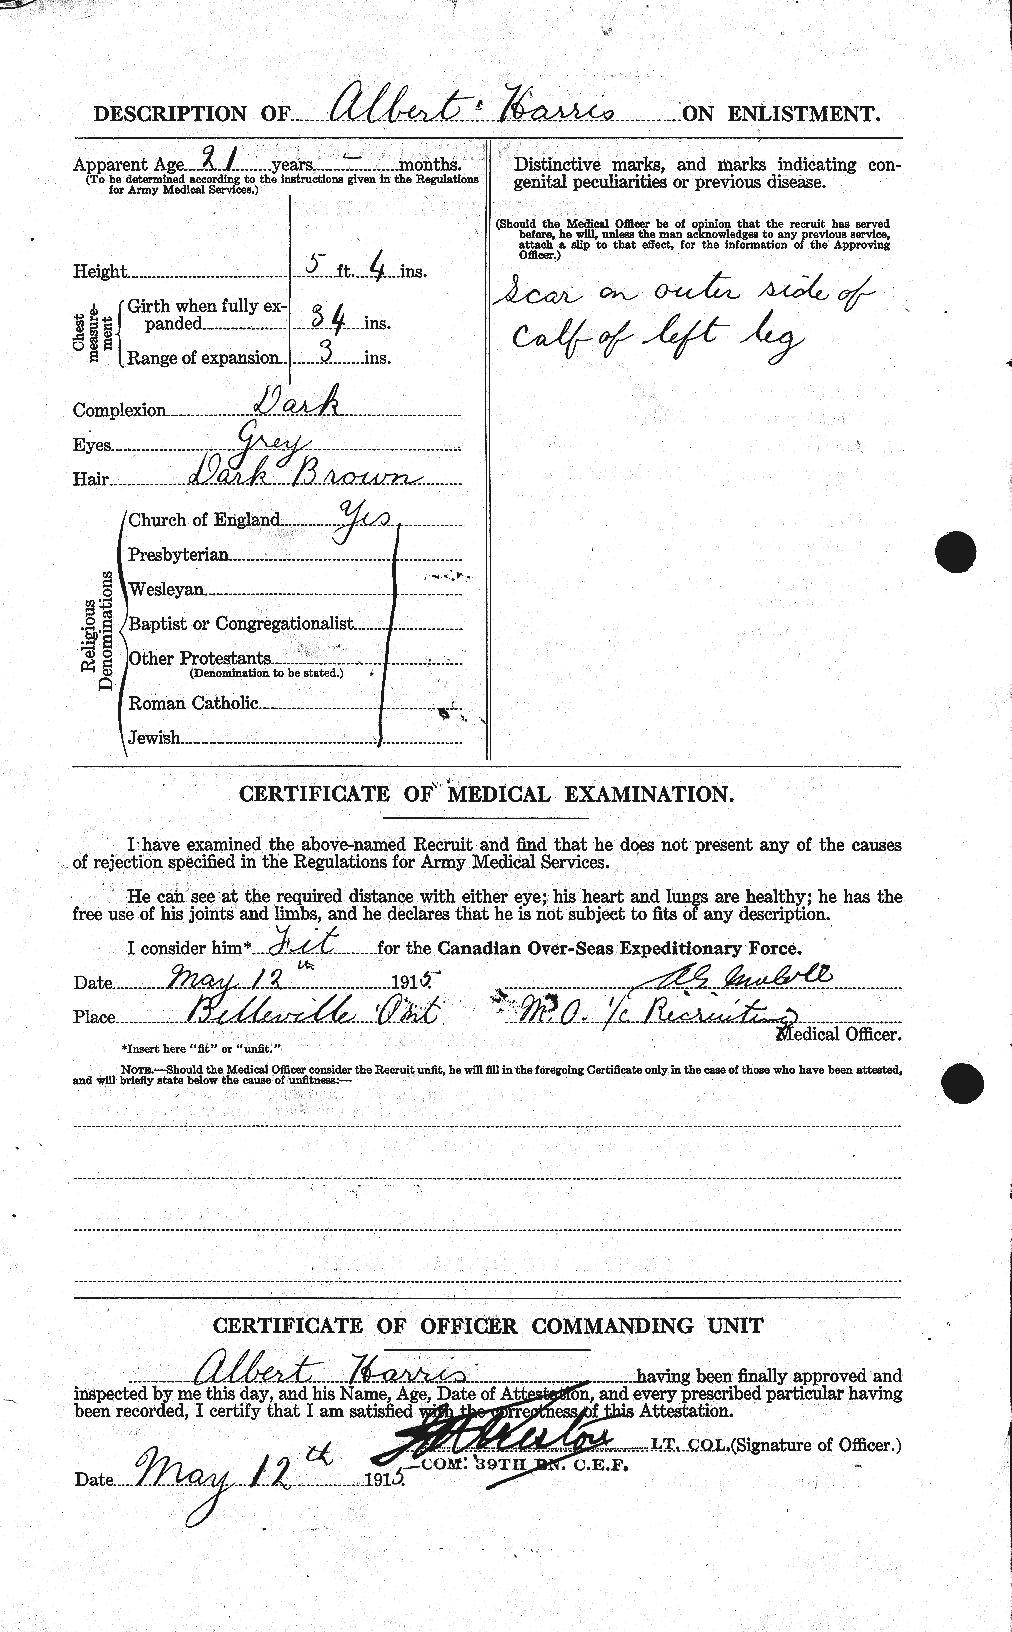 DESCRIPTION OF Albert Harris ON ENLISTMENT.
Apparent Age 21 years – months.
(To be determined according to the instructions given in the Regulations
for Army Medical Services.)
Height 5 ft. 4 ins.
Chest measure-ment
Girth when fully ex-
panded 34 ins.
Range of expansion 3 ins.
Complexion Dark
Eyes Grey
Hair Dark Brown
Religious Denominations
Church of England Yes
Presbyterian
Wesleyan
Baptist or Congregationalist
Other Protestants
(Denomination to be stated.)
Roman Catholic
Jewish
Distinctive marks, and marks indicating con-
genital peculiarities or previous disease.
(Should the Medical Officer be of opinion that the recruit has served
before, he will, unless the man acknowledges to any previous service,
attach a slip to that effect, for the information of the Approving
Officer.)
Scar on outer side of
calf of left leg
CERTIFICATE OF MEDICAL EXAMINATION.
I have examined the above-named Recruit and find that he does not present any of the causes
of rejection specified in the Regulations for Army Medical Services.
He can see at the required distance with either eye; his heart and lungs are healthy; he has the
free use of his joints and limbs, and he declares that he is not subject to fits of any description.
I consider him* Fit for the Canadian Over-Seas Expeditionary Force.
Date May 12th 1915
Place Belleville Ont M.O. i/c Recruiting
Medical Officer.
*Insert here "fit" or "unfit."
NOTE.—Should the Medical Officer consider the Recruit unfit, he will fill in the foregoing Certificate only in the case of those who have been attested,
and will briefly state below the cause of unfitness:—
CERTIFICATE OF OFFICER COMMANDING UNIT
Albert Harris having been finally approved and
inspected by me this day, and his Name, Age, Date of Attestation, and every prescribed particular having
been recorded, I certify that I am satisfied with the correctness of this Attestation.
LT. COL. (Signature of Officer.)
COM: 39TH BN. C.E.F.
Date May 12th 1915